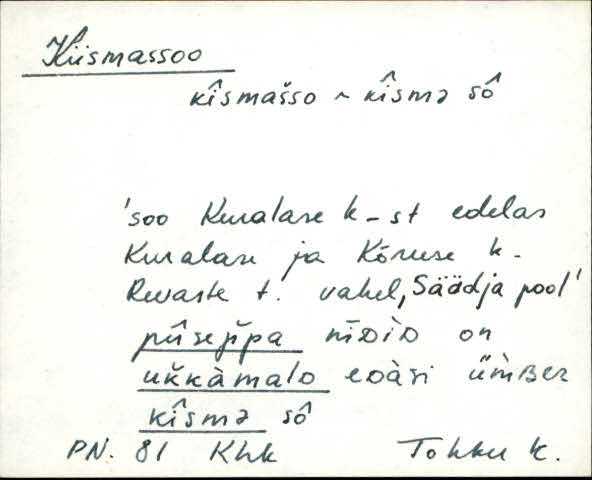 Kiismassoo
kîsmašso ~ kîsmə sô
'soo Kuralase k-st edelas
Kuralase ja Kõruse k.
Revaste t. vahel, Säädja pool'
pîiseĵĵpa nīᴅìᴅ on
uk̆kàmalo eᴅàsi ǘmʙer
kîsmə sô
PN. 81 Khk Tohku k.